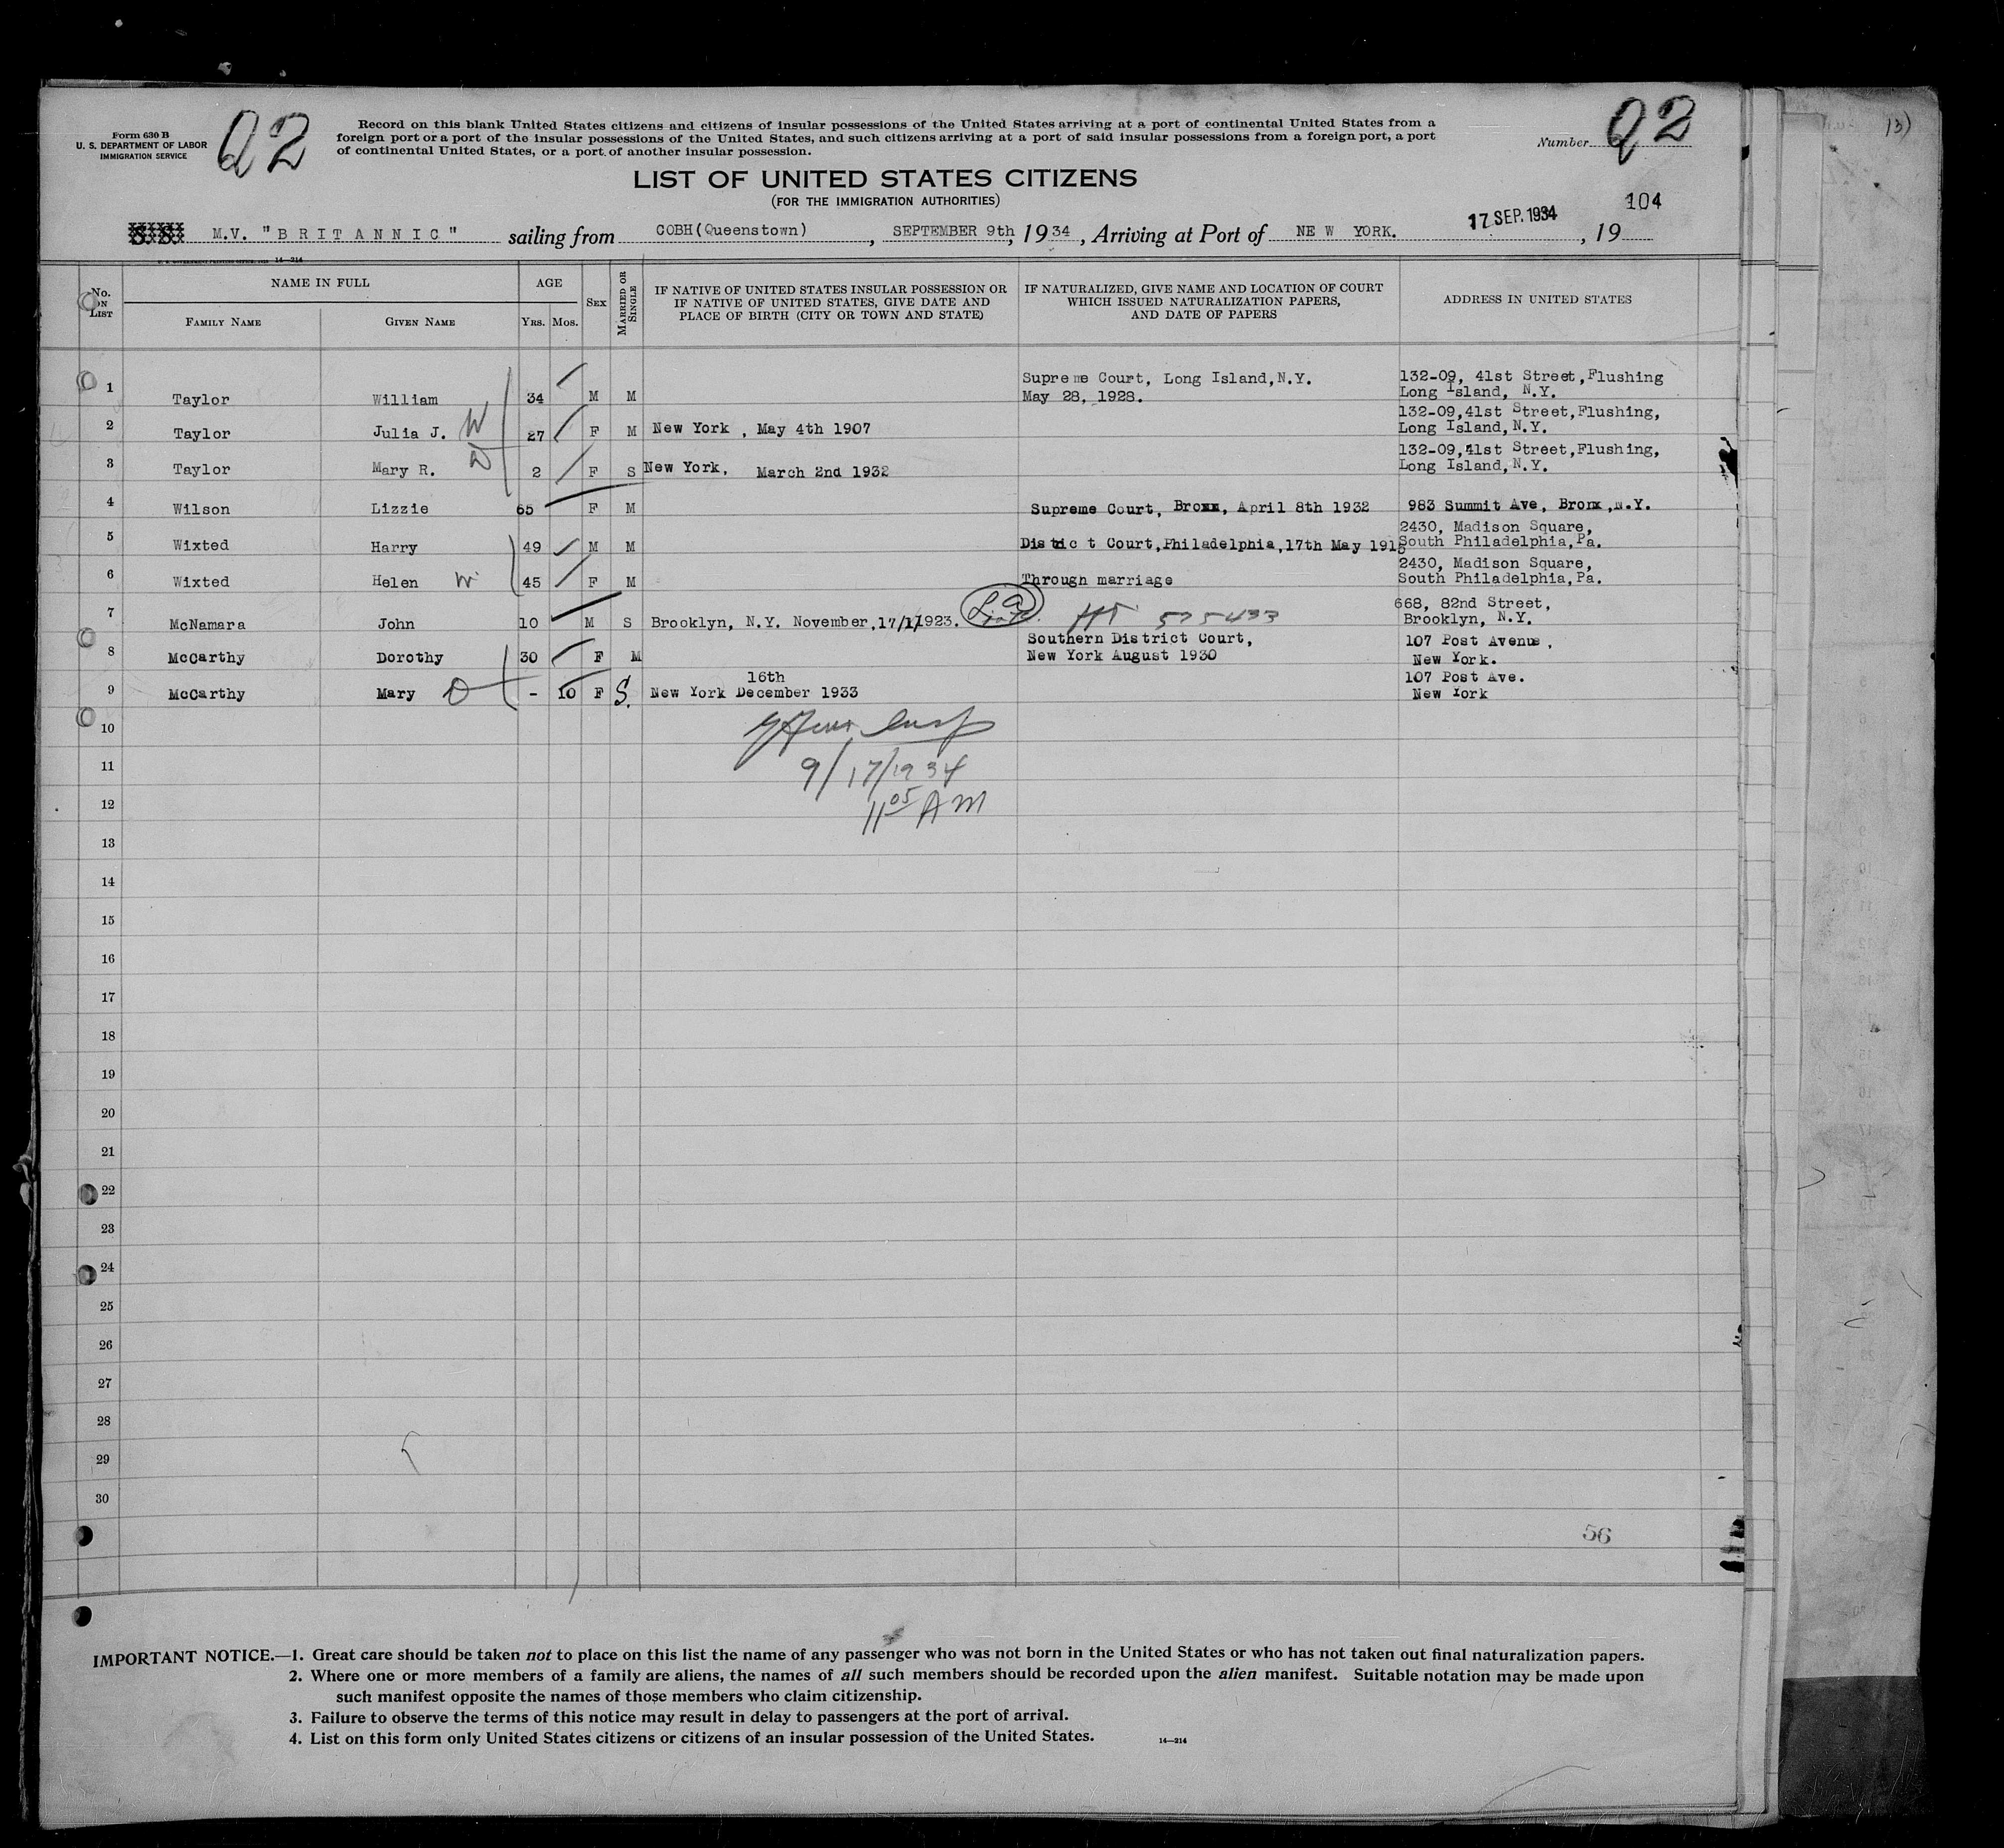 Form 630 B
U. S. DEPARTMENT OF LABOR
IMMIGRATION SERVICE
Q2
Record on this blank United States citizens and citizens of insular possessions of the United States arriving at a port of continental United States from a
foreign port or a port of the insular possessions of the United States, and such citizens arriving at a port of said insular possessions from a foreign port, a port
of continental United States, or a port of another insular possession.
Number Q2
13)
LIST OF UNITED STATES CITIZENS
(FOR THE IMMIGRATION AUTHORITIES)
104
S. S. M.V. "BRITANNIC" sailing from COBH(Queenstown), SEPTEMBER 9th, 1934, Arriving at Port of NEW YORK. 17 SEP. 1934, 19
14—214
No. ON LIST NAME IN FULL AGE SEX MARRIED OR SINGLE IF NATIVE OF UNITED STATES INSULAR POSSESSION OR IF NATIVE OF UNITED STATES, GIVE DATE AND PLACE OF BIRTH (CITY OR TOWN AND STATE) IF NATURALIZED, GIVE NAME AND LOCATION OF COURT WHICH ISSUED NATURALIZATION PAPERS, AND DATE OF PAPERS ADDRESS IN UNITED STATES
FAMILY NAME GIVEN NAME YRS. MOS.
1 Taylor William 34 M M Supreme Court, Long Island,N.Y. May 28, 1928. 132-09, 41st Street,Flushing Long Island, N.Y.
2 Taylor Julia J. W 27 F M New York , May 4th 1907 132-09,41st Street,Flushing, Long Island,N.Y.
3 Taylor Mary R. D 2 F S New York, March 2nd 1932 132-09,41st Street,Flushing, Long Island,N.Y.
4 Wilson Lizzie 65 F M Supreme Court, Bronx, April 8th 1932 983 Summit Ave, Bronx,N.Y.
5 Wixted Harry 49 M M District Court,Philadelphia,17th May 1915 2430, Madison Square, South Philadelphia,Pa.
6 Wixted Helen W 45 F M Through marriage 2430, Madison Square, South Philadelphia,Pa.
7 McNamara John 10 M S Brooklyn, N.Y. November,17/1/1923. 575433 668, 82nd Street, Brooklyn, N.Y.
8 McCarthy Dorothy 30 F M Southern District Court, New York August 1930 107 Post Avenue, New York.
9 McCarthy Mary D - 10 F S. New York December 16th 1933 107 Post Ave. New York
10
9/17/1934
11
11 05 AM
12
13
14
15
16
17
18
19
20
21
22
23
24
25
26
27
28
29
30
56
IMPORTANT NOTICE.—1. Great care should be taken not to place on this list the name of any passenger who was not born in the United States or who has not taken out final naturalization papers.
2. Where one or more members of a family are aliens, the names of all such members should be recorded upon the alien manifest. Suitable notation may be made upon
such manifest opposite the names of those members who claim citizenship.
3. Failure to observe the terms of this notice may result in delay to passengers at the port of arrival.
4. List on this form only United States citizens or citizens of an insular possession of the United States. 14—214